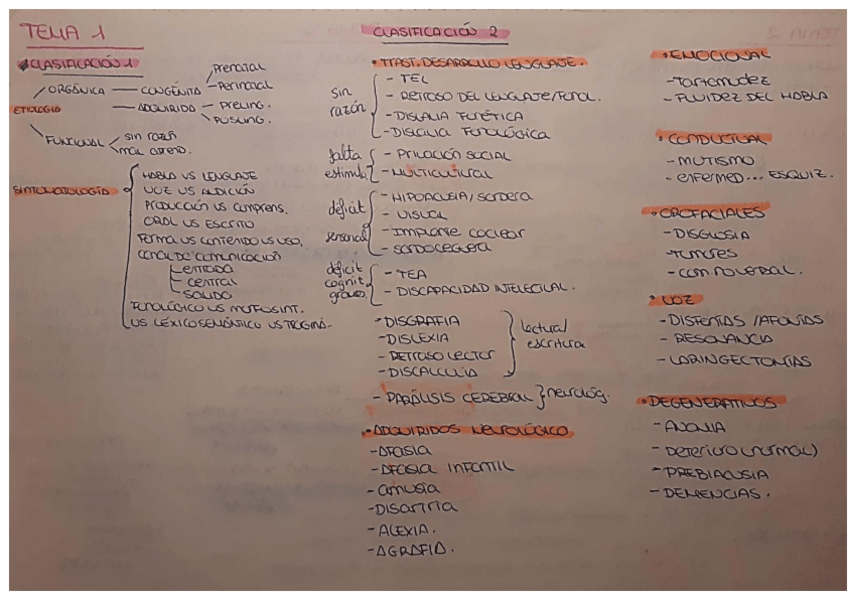 TEMA 1
CLASIFICACIÓN 1
ETIOLOGÍA
ORGÁNICA
CONGÉNITO
Prenatal
Perinatal
ADQUIRIDO
PreLING.
POSLING.
FUNCIONAL
sin razón
mal
SINTOMATOLOGÍA
HABLA VS LENGUAJE
VOZ VS AUDICIÓN
PRODUCCIÓN VS COMPRENS.
ORAL VS ESCRITO
FORMA VS CONTENIDO VS USO.
CANAL DE COMUNICACIÓN
ENTRADA
CENTRAL
SALIDA
FONOLÓGICO VS MORFOSINT.
VS LÉXICO SEMÁNTICO VS PRAGMÁ.
CLASIFICACIÓN 2
• TTAST. DESARROLLO LENGUAJE.
sin razón
- TEL
- RETRASO DEL LENGUAJE/FONOL.
- DISLALIA FONÉTICA
- DISLALIA FONOLÓGICA
falta estimul.
- PRIVACIÓN SOCIAL
- MULTICULTURAL
déficit sensorial
- HIPOACUSIA/sordera
- VISUAL
- Implante coclear
- SORDOCEGUERA
déficit cognit. graves
- TEA
- DISCAPACIDAD INTELECTUAL.
- DISGRAFIA
- DISLEXIA
- RETRASO LECTOR
- DISCALCULIA
lectura/
escritura
- PARÁLISIS CEREBRAL } neurológ.
• ADQUIRIDOS NEUROLÓGICO
- AFASIA
- AFASIA INFANTIL
- amusia
- DISARTRIA
- ALEXIA.
- AGRAFIA.
• EMOCIONAL
- Tartamudez
- FLUIDEZ DEL HABLA
• CONDUCTUAL
- MUTISMO
- enfermed... ESQUIZ.
• OROFACIALES
- DISGLOSIA
- tumores
- COM. NO VERBAL.
• VOZ
- DISFONÍAS / AFONÍAS
- RESONANCIA
- LARINGECTOMÍAS
• DEGENERATIVOS
- ANOMIA
- DETERIORO (normal)
- PREBIACUSIA
- DEMENCIAS.